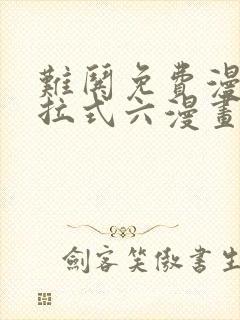 難鬨免費漫
拉式六漫畫
劍客笑傲書生